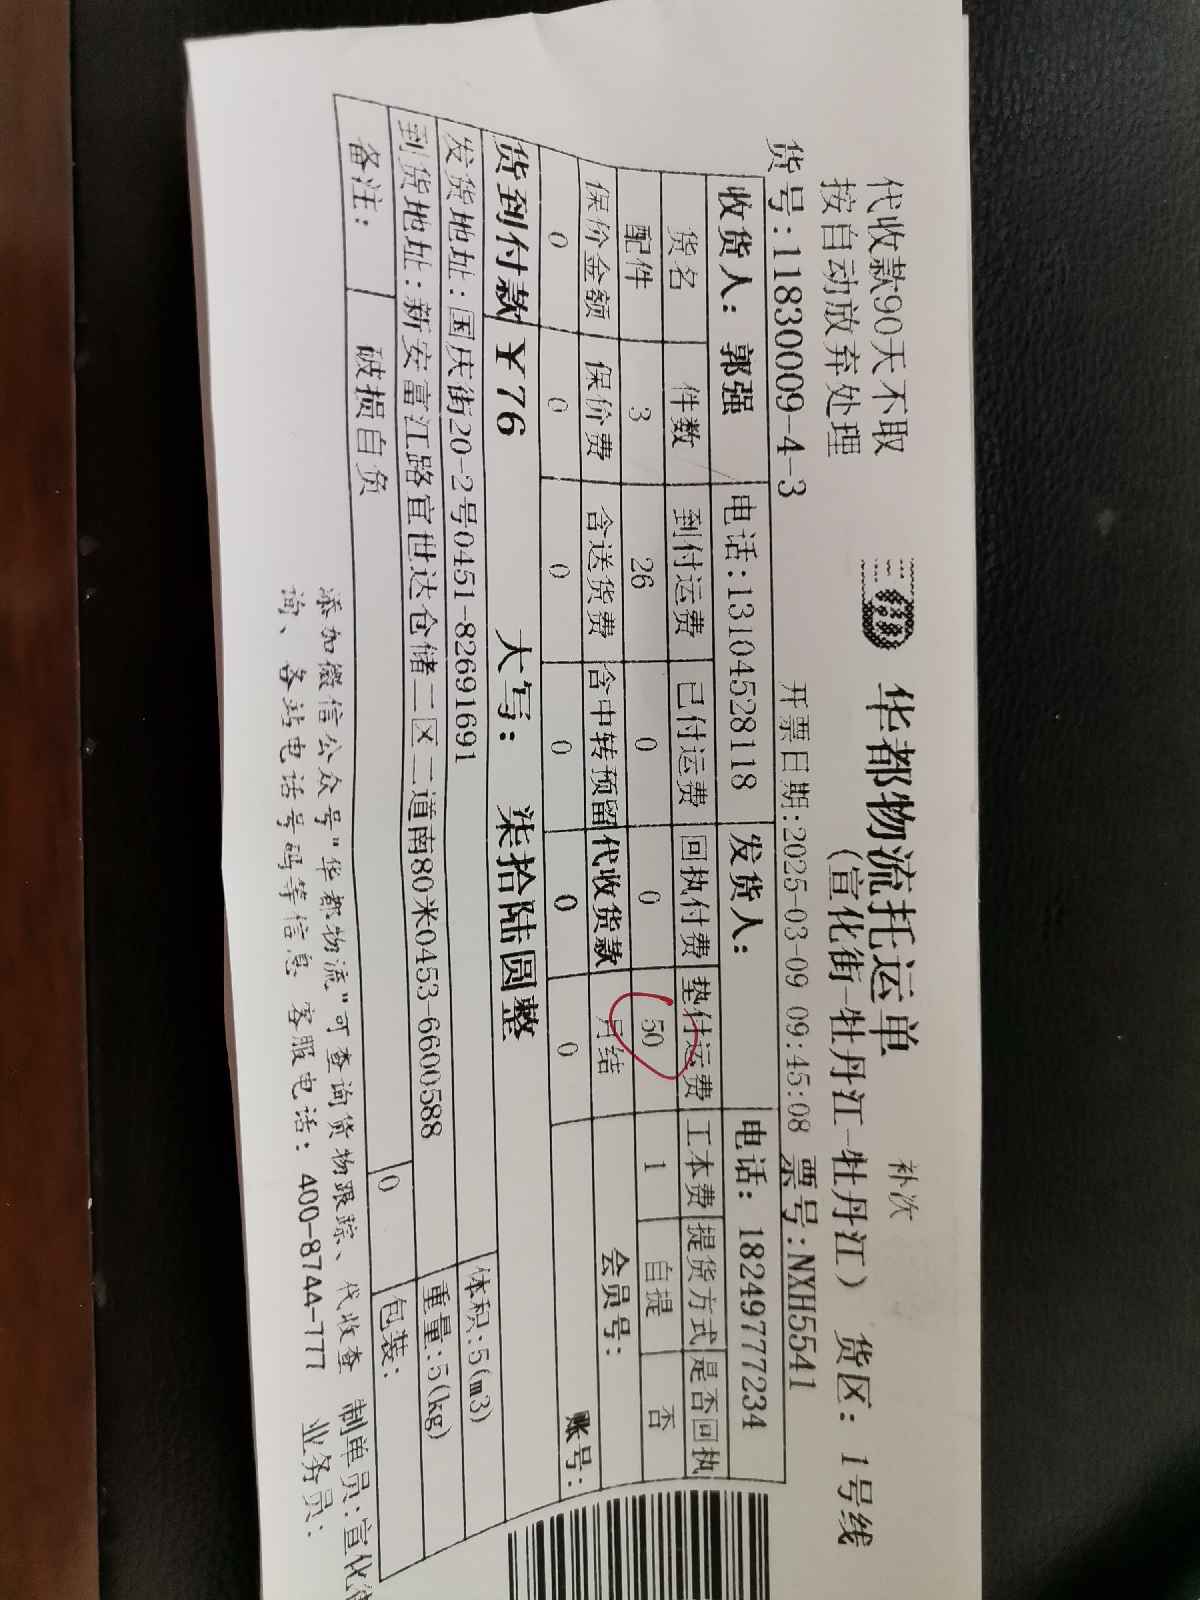 代收款90天不取
按自动放弃处理
华都物流托运单
补次
(宣化街-牡丹江-牡丹江) 货区: 1号线
货号:11830009-4-3 开票日期:2025-03-09 09:45:08 票号:NXH5541
收货人: 郭强 电话:13104528118 发货人: 电话: 18249777234
货名 件数 到付运费 已付运费 回执付费 垫付运费 工本费 提货方式 是否回执
配件 3 26 0 0 50 1 自提 否
保价金额 保价费 含送货费 含中转预留 代收货款 月结 会员号:
0 0 0 0 0 0 账号:
货到付款 ¥76 大写: 柒拾陆圆整
发货地址:国庆街20-2号0451-82691691 体积:5(m3)
到货地址:新安富江路宜世达仓储二区二道南80米0453-6600588 重量:5(kg)
备注: 破损自负 0 包装:
添加微信公众号"华都物流"可查询货物跟踪、代收查 制单员:宣化街
询、各站电话号码等信息 客服电话: 400-8744-777 业务员: